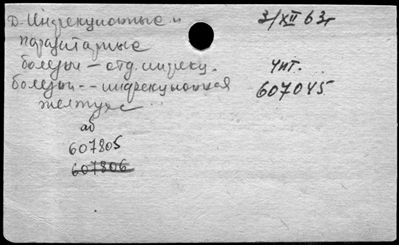 Д-Инфекционные и 3/XII 63г
паразитарные
болезни – отд. инфекц. Чит.
болезни -- инфекционная 607045
желтуха
аб
607805
607806